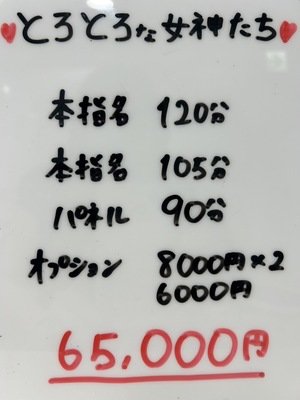 ♥とろとろな女神たち♥
本指名 120分
本指名 105分
パネル 90分
オプション 8000円×2
6000円
65,000円